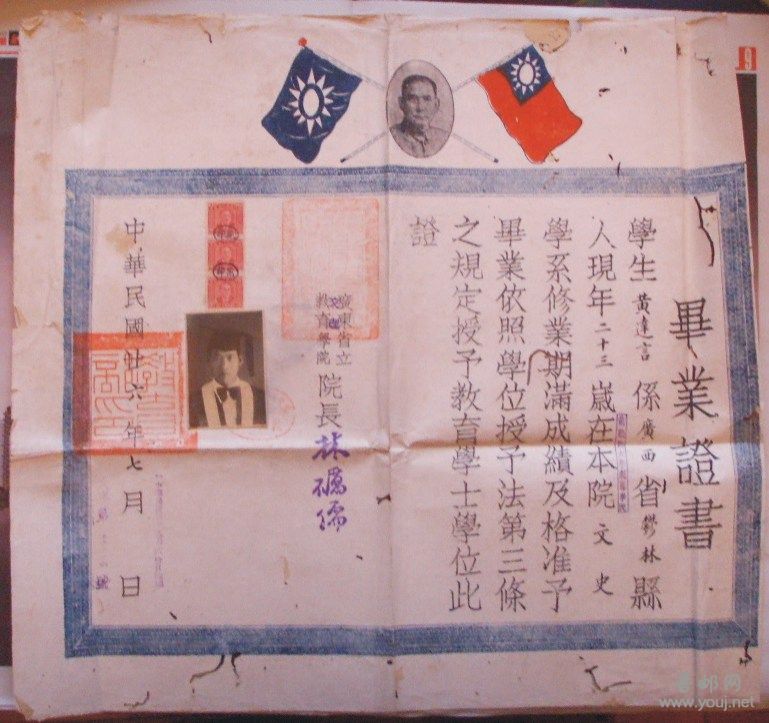 畢業證書
學生黃達言係廣西省鬱林縣
人現年二十三歲在本院文史
學系修業期滿成績及格准予
畢業依照學位授予法第三條
之規定授予教育學士學位此
證
廣東省立
教育學院
院長林礪儒
中華民國廿六年七月 日
www.youj.net